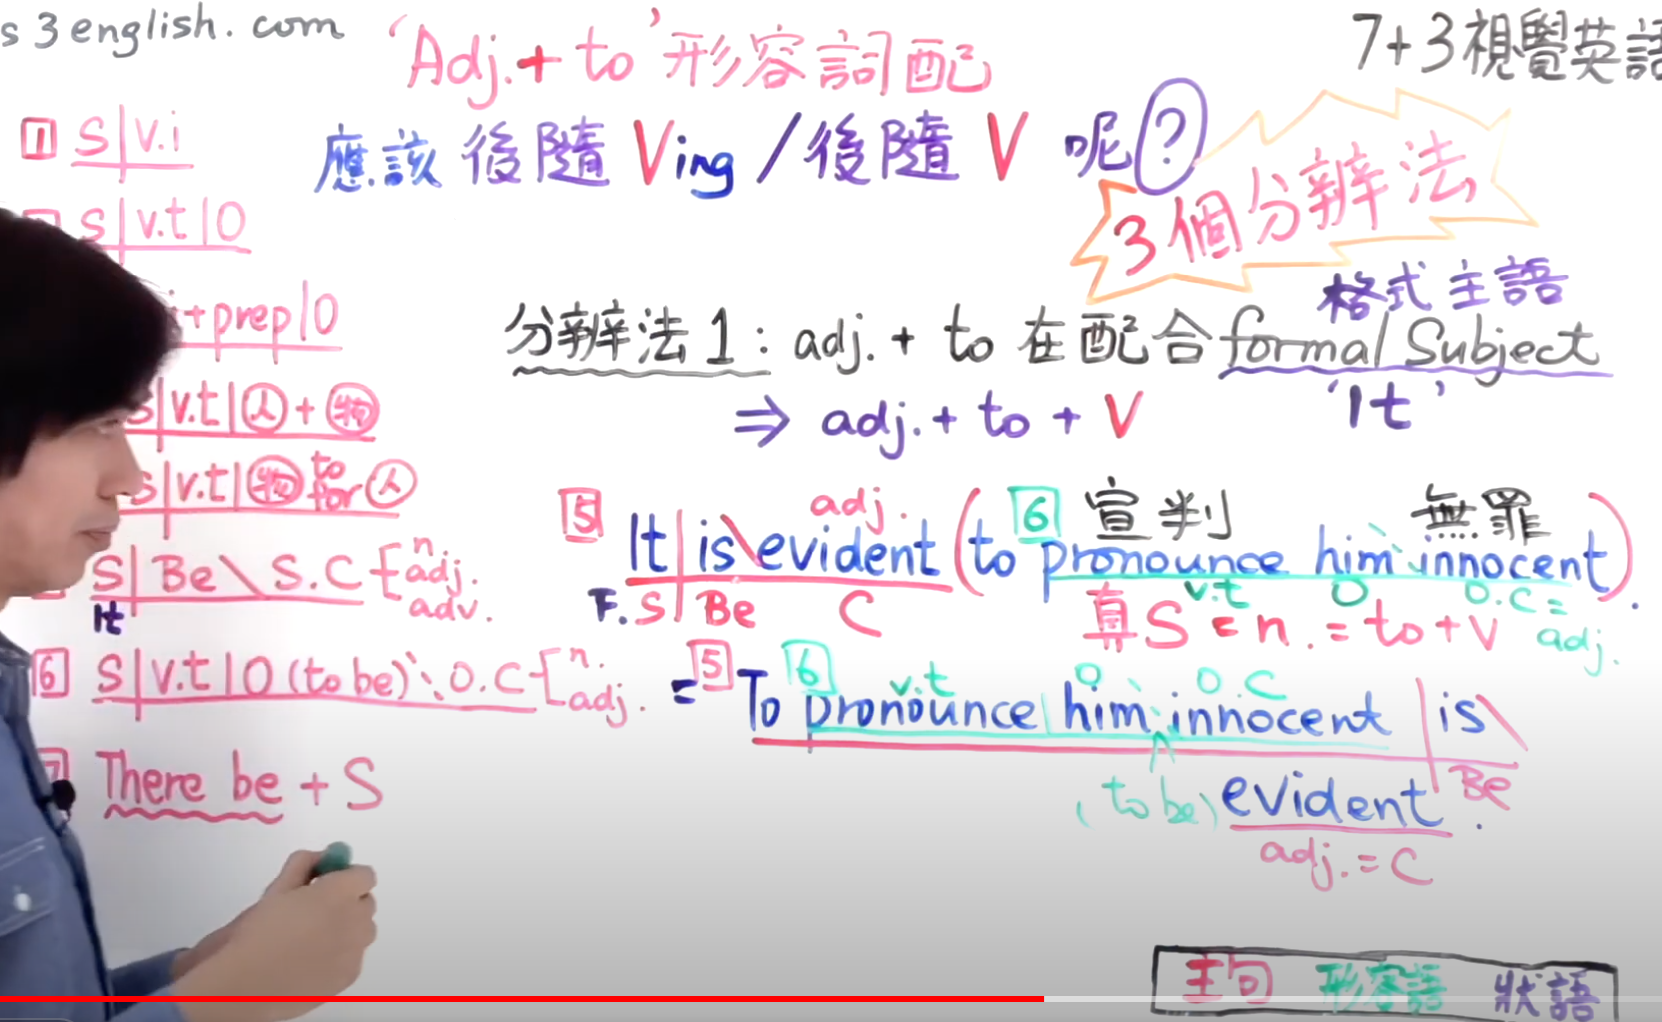 s3english.com
'Adj. + to' 形容詞配
7+3視覺英語
應該 後隨 Ving / 後隨 V 呢?
3個分辨法
1 S | v.i
S | v.t | O
+ prep | O
S | v.t | 人 + 物
S | v.t | 物 to for 人
S | Be \ S.C [ n adj. adv.
It
6 S | v.t | O (to be) \ O.C [ n. adj.
7 There be + S
格式主語
分辨法1: adj. + to 在配合 formal Subject
'It'
⇒ adj. + to + V
adj. 宣判 無罪
5 It | is \ evident (to 6 pronounce him \ innocent).
F.S | Be C v.t O O.C = adj.
真S = n. = to + V
v.t O O.C
= 5 To 6 pronounce | him \ innocent | is \
Be
(to be) evident.
adj. = C
主句 形容語 狀語